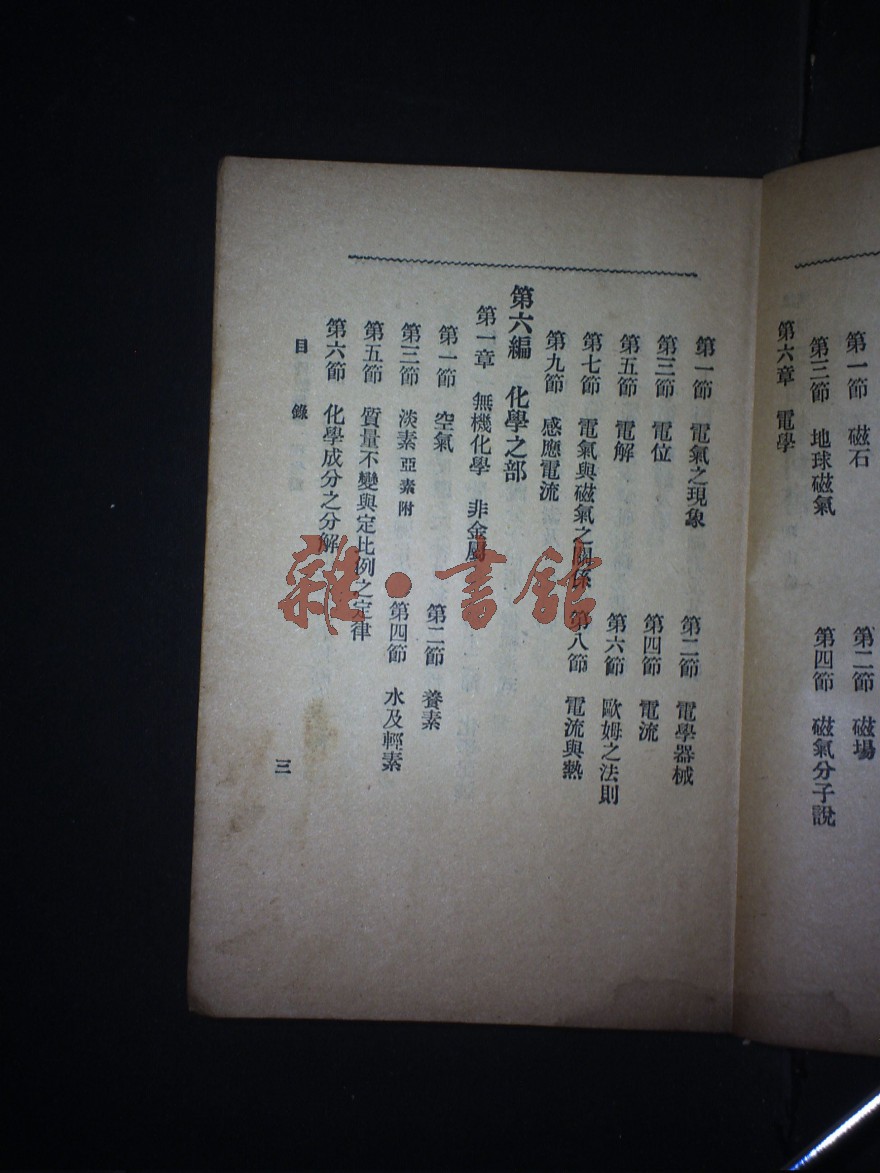 第一節　磁石　第二節　磁場
第三節　地球磁氣　第四節　磁氣分子說
第六章　電學
第一節　電氣之現象　第二節　電學器械
第三節　電位　第四節　電流
第五節　電解　第六節　歐姆之法則
第七節　電氣與磁氣之關係　第八節　電流與熱
第九節　感應電流
第六編　化學之部
第一章　無機化學　非金屬
第一節　空氣　第二節　養素
第三節　淡素亞素附　第四節　水及輕素
第五節　質量不變與定比例之定律
第六節　化學成分之分解
目錄　三
雜·書館